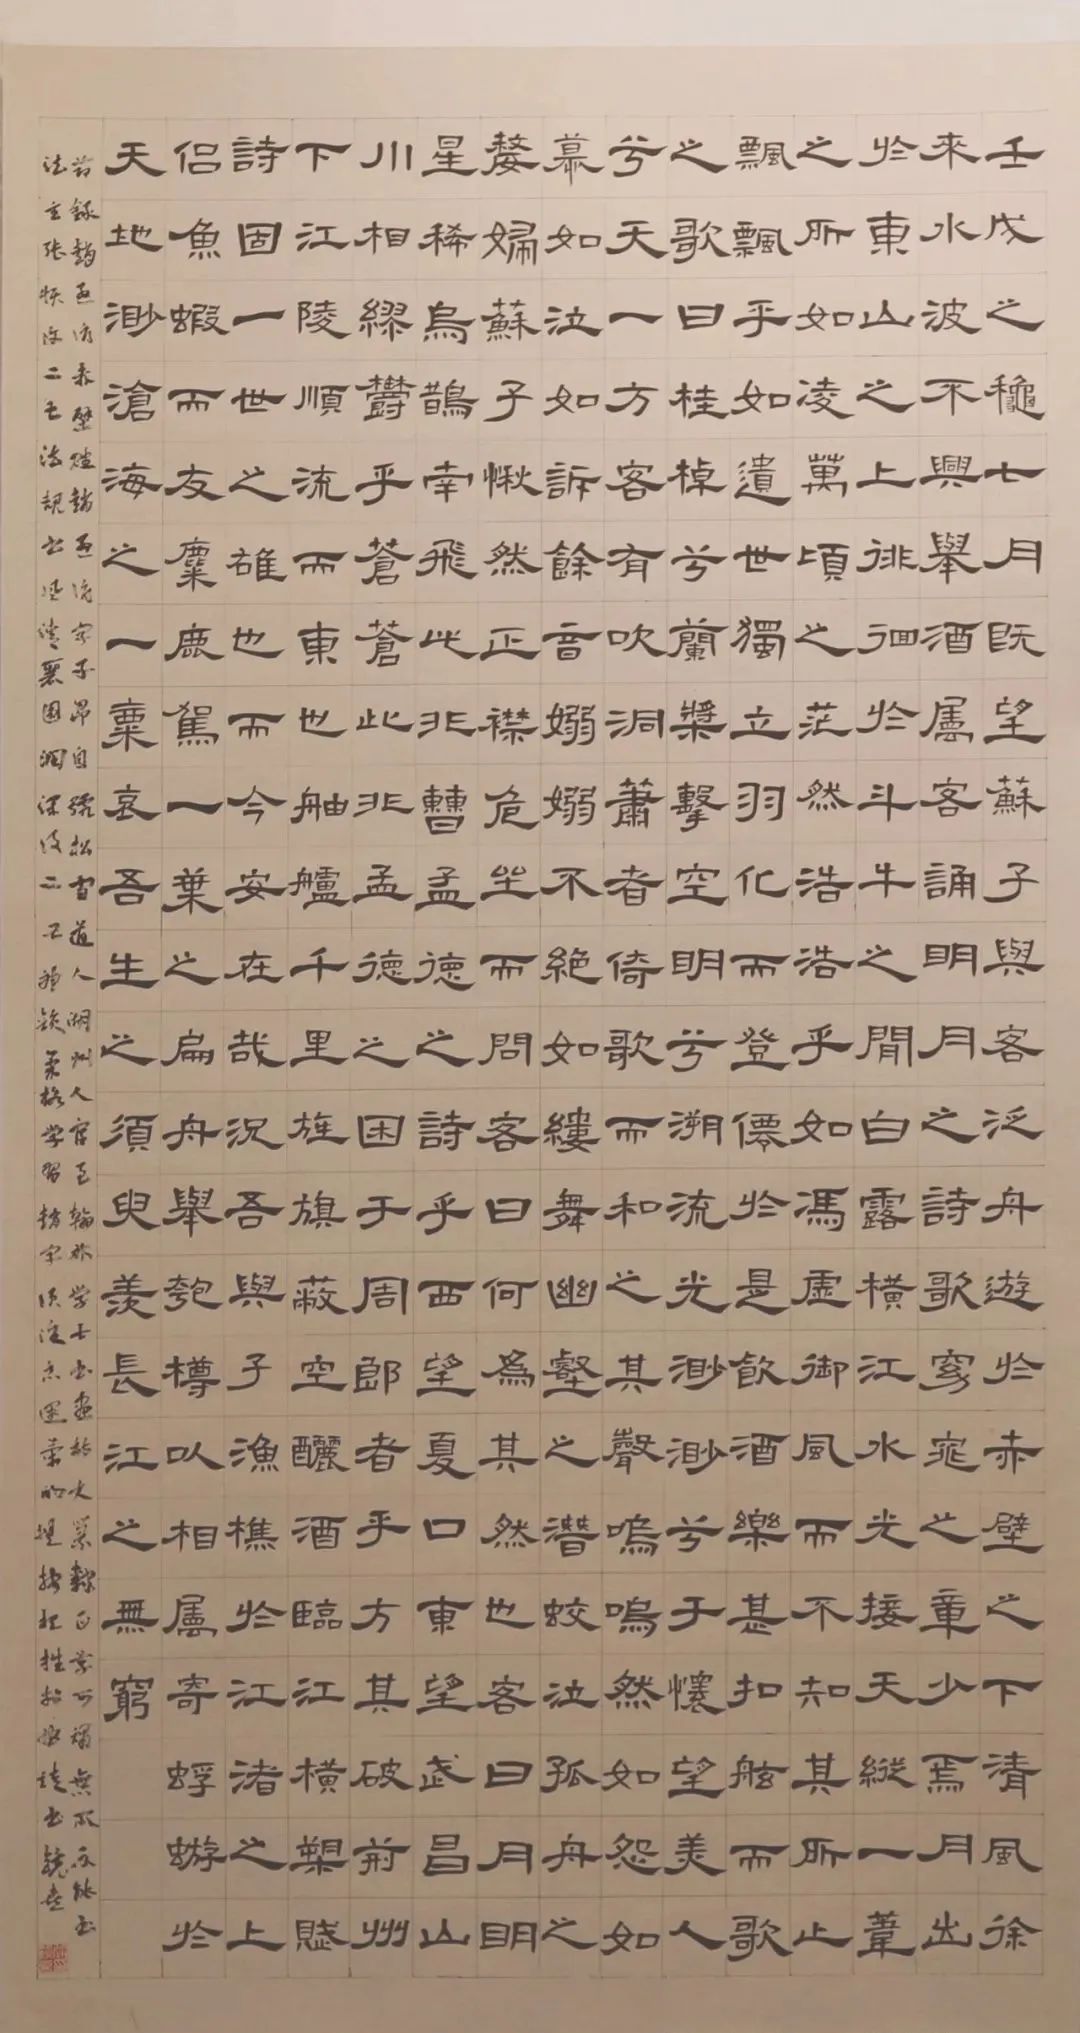 壬戌之穐七月既望蘇子與客泛舟遊於赤壁之下清風徐
來水波不興舉酒屬客誦明月之詩歌窈窕之章少焉月出
於東山之上徘徊於斗牛之間白露橫江水光接天縱一葦
之所如凌萬頃之茫然浩浩乎如馮虛御風而不知其所止
飄飄乎如遺世獨立羽化而登僊於是飲酒樂甚扣舷而歌
之歌曰桂棹兮蘭槳擊空明兮溯流光渺渺兮于懷望美人
兮天一方客有吹洞蕭者倚歌而和之其聲嗚嗚然如怨如
慕如泣如訴餘音嫋嫋不絕如縷舞幽壑之潛蛟泣孤舟之
嫠婦蘇子愀然正襟危坐而問客曰何為其然也客曰月明
星稀烏鵲南飛此非曹孟德之詩乎西望夏口東望武昌山
川相繆鬱乎蒼蒼此非孟德之困于周郎者乎方其破荊州
下江陵順流而東也舳艫千里旌旗蔽空釃酒臨江橫槊賦
詩固一世之雄也而今安在哉況吾與子漁樵於江渚之上
侶魚蝦而友麋鹿駕一葉之扁舟舉匏樽以相屬寄蜉蝣於
天地渺滄海之一粟哀吾生之須臾羨長江之無窮
節錄趙孟頫赤壁賦趙孟頫字子昂自號松雪道人湖州人官至翰林学士书画無所不能书
法主張恢復二王法规